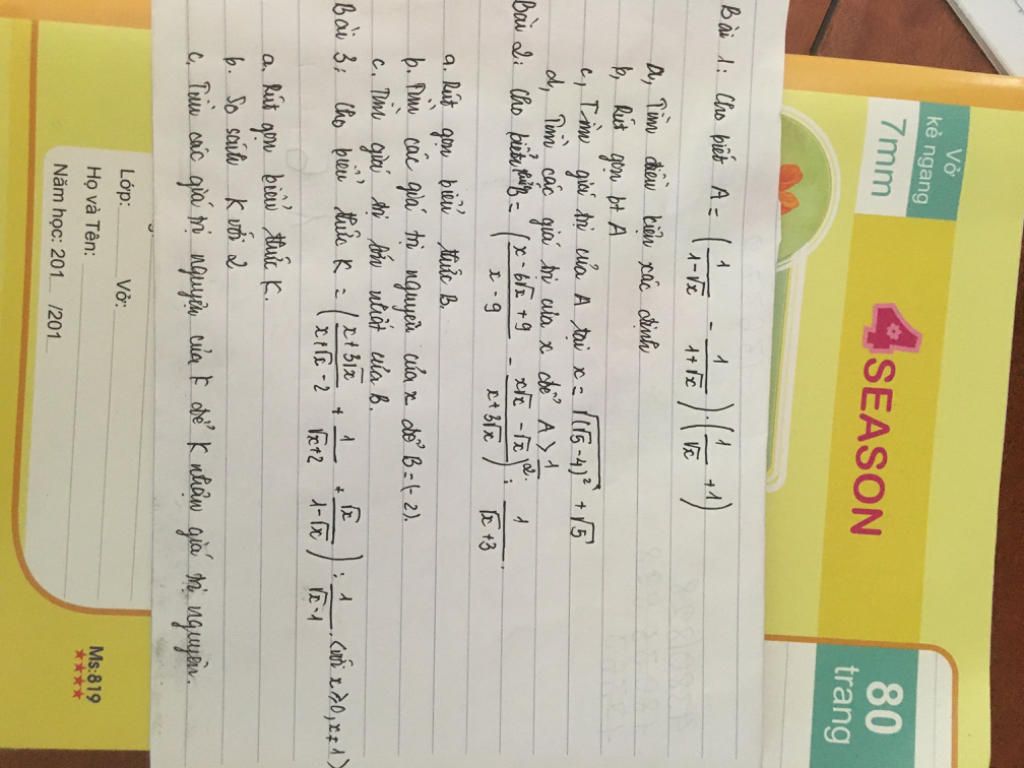 Bài 1: Cho biết A = (1/(1-√x) - 1/(1+√x)) · (1/√x + 1)
a, Tìm điều kiện xác định
b, Rút gọn bt A
c, Tìm giá trị của A tại x = √((√5-4)²) + √5
d, Tìm các giá trị của x để A > 1/2.
Bài 2: Cho biểu thức B = ((x-6√x+9)/(x-9) - (x√x-√x)/(x+3√x)) : 1/(√x+3).
a. Rút gọn biểu thức B.
b. Tìm các giá trị nguyên của x để B = (-2).
c. Tìm giá trị lớn nhất của B.
Bài 3: Cho biểu thức K = ((x+3√x)/(x+√x-2) + 1/(√x+2) + √x/(1-√x)) : 1/(√x-1). (với x≥0, x≠1)
a. Rút gọn biểu thức K.
b. So sánh K với 2
c, Tìm các giá trị nguyên của K để K nhận giá trị nguyên.
Vở
kẻ ngang
7mm
4 SEASON
80
trang
Lớp: Vở:
Họ và Tên:
Năm học: 201 /201
Ms:819